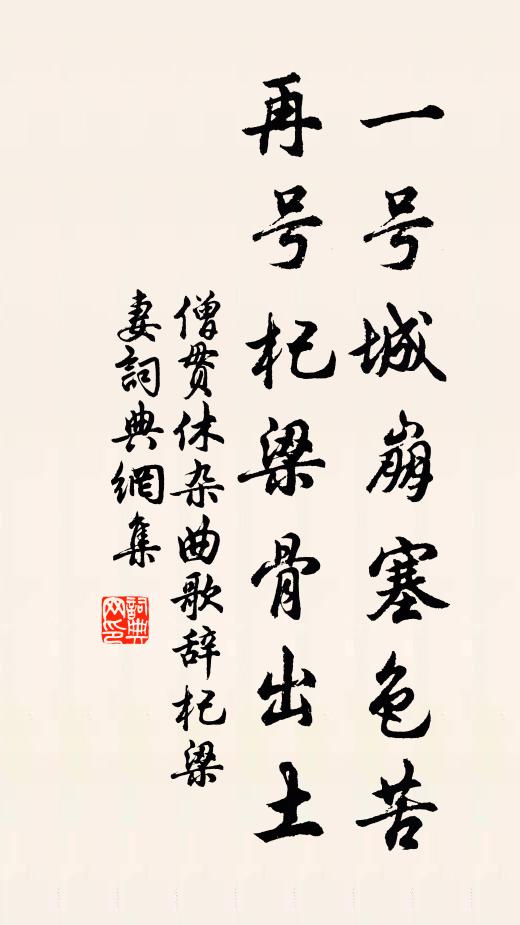 一号城崩塞色苦
再号杞梁骨出土
僧贯休杂曲歌辞杞梁
妻詞典網集
詞典
网印